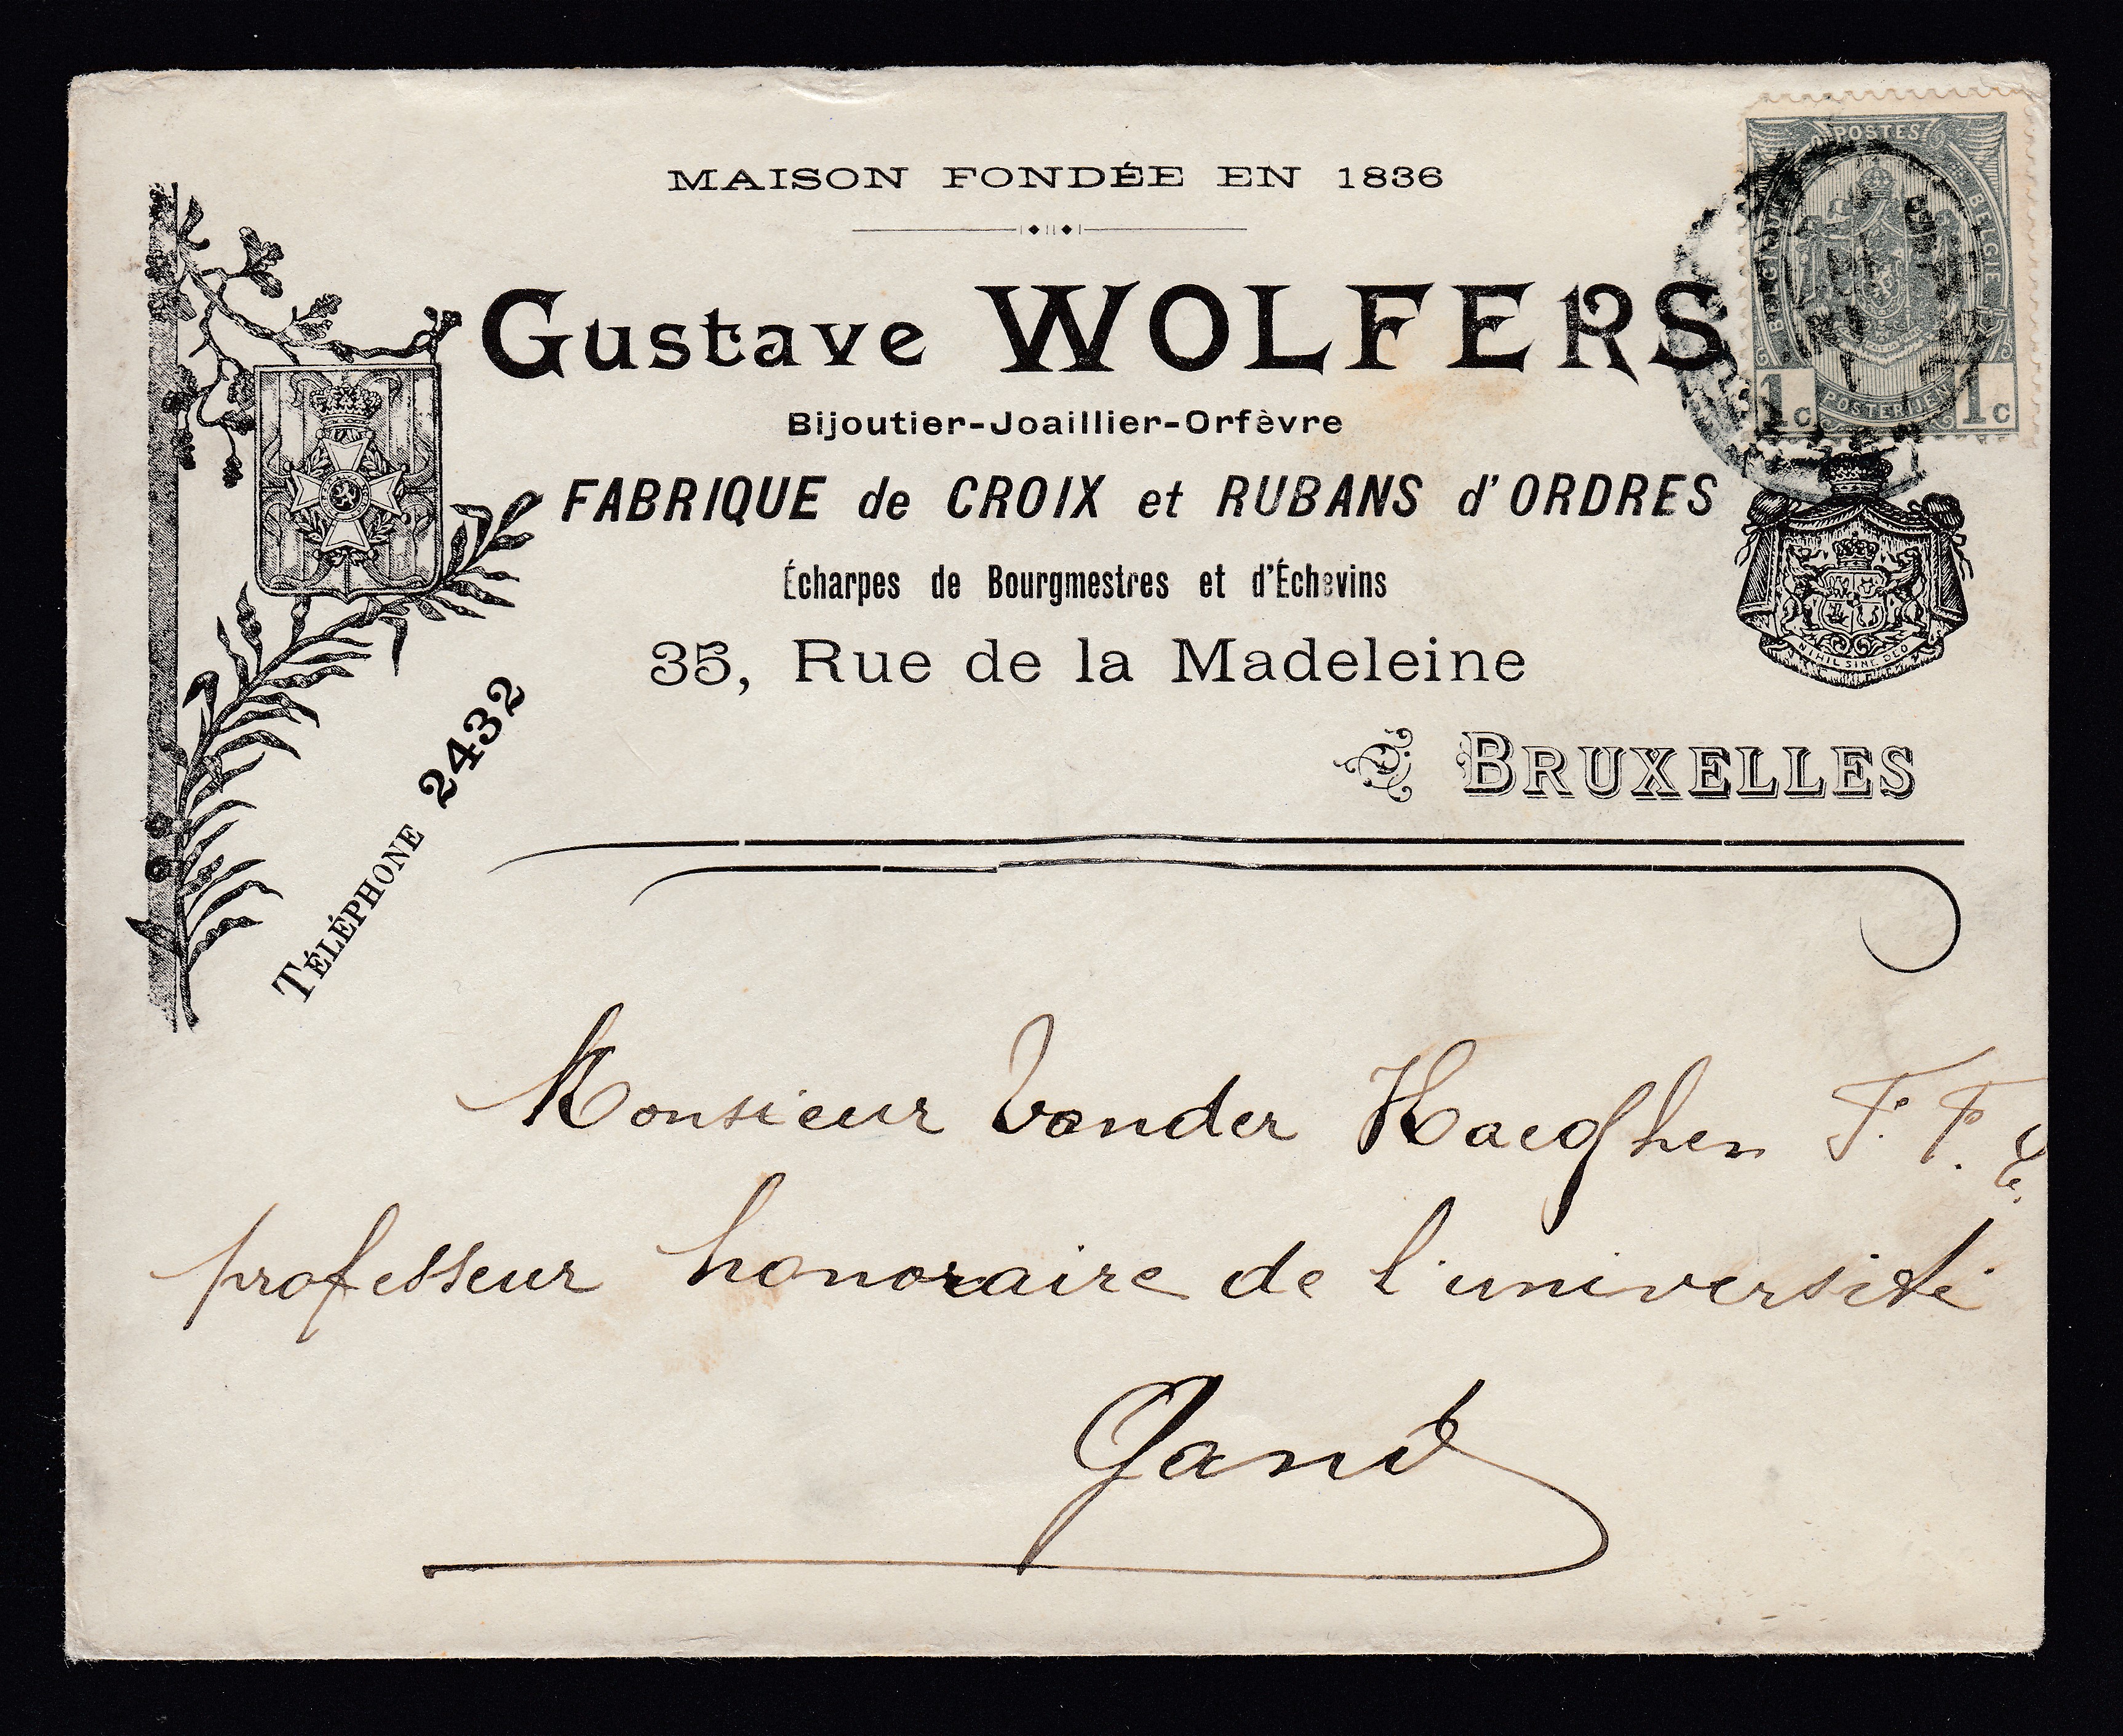 MAISON FONDÉE EN 1836
Gustave WOLFERS
Bijoutier-Joaillier-Orfèvre
FABRIQUE de CROIX et RUBANS d'ORDRES
Écharpes de Bourgmestres et d'Échevins
35, Rue de la Madeleine
BRUXELLES
TÉLÉPHONE 2432
POSTES
BELGIQUE
BELGIE
POSTERIJEN
1c 1c
NIHIL SINE DEO
Monsieur Vander Haeghen F. F. E.
professeur honoraire de l'université
Gand